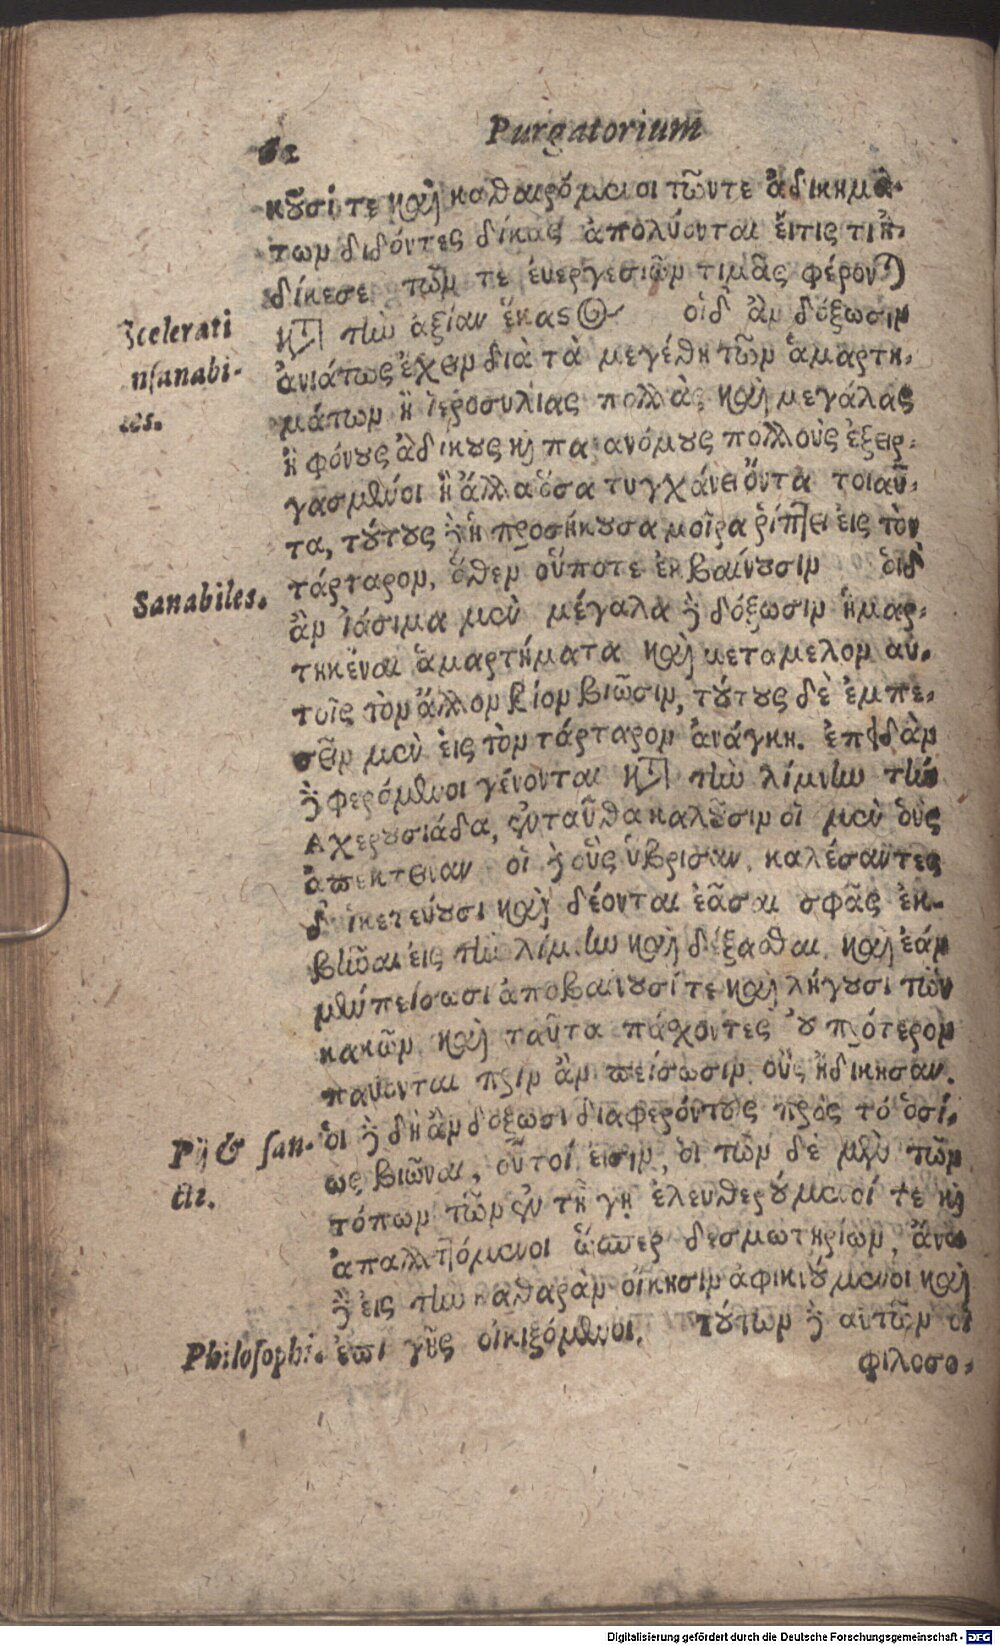 Purgatorium
κουσί τε καὶ καθαιρόμενοι τῶντε ἀδικημά-
των διδόντες δίκας ἀπολύονται εἴτις τι ἠ-
δίκεσε τῶν τε ἐυεργεσιῶν τιμὰς φέρονται
Scelerati
κατὰ τὴν ἀξίαν ἕκαστος οἱδ' ἂν δόξωσιν
nsanabi-
ἀνιάτως ἔχειν διὰ τὰ μεγέθη τῶν ἁμαρτη-
les.
μάτων ἢ ἱεροσυλίας πολλὰς καὶ μεγάλας
ἢ φόνους ἀδίκους καὶ παρανόμους πολλοὺς ἐξειρ-
γασμένοι ἢ ἄλλα ὅσα τυγχάνει ὄντα τοιαῦ-
τα, τούτους δὲ ἡ προσήκουσα μοῖρα ῥίπτει εἰς τὸν
Sanabiles.
τάρταρον, ὅθεν οὔποτε ἐκβαίνουσιν οἱδ'
ἂν ἰάσιμα μεν μέγαλα δὲ δόξωσιν ἡμαρ-
τηκέναι ἁμαρτήματα καὶ μεταμελον αὐ-
τοῖς τὸν ἄλλον βίον βιῶσιν, τούτους δὲ ἐμπε-
σεῖν μεν εἰς τὸν τάρταρον ἀνάγκη. ἐπειδὰν
δὲ φερόμενοι γένονται κατὰ τὴν λίμνην τὴν
Αχερουσιάδα, ἐνταῦθα καλοῦσιν οἱ μεν οὓς
ἀπεκτειναν οἱ δὲ οὓς ὑβρισαν. καλέσαντες
δ' ἱκετεύουσι καὶ δέονται ἐᾶσαι σφᾶς ἐκ-
βιῶαι εἰς τὴν λίμνην καὶ δέξασθαι. καὶ ἐάν
μὲν πείσωσι ἀποβαίνουσί τε καὶ λήγουσι τῶν
κακῶν καὶ ταῦτα πάχοντες οὐ πρότερον
παύονται πριν ἂν πείσωσιν οὓς ἠδικησαν.
Pij & san-
οἱ δὲ δὴ ἂν δόξωσι διαφερόντως πρὸς τό ὁσί-
cti.
ως βιῶναι, οὗτοί εἰσιν, οἱ τῶν δὲ μὲν τῶν
τόπων τῶν ἐν τῇ γῇ ἐλευθερούμενοί τε καὶ
ἀπαλλαττόμενοι ὥσπερ δεσμωτηρίων, ἄνω
δὲ εἰς τὴν καθαρὰν οἴκησιν ἀφικιούμενοι καὶ
Philosophi.
ἐπι γῆς οἰκιζόμενοι. τούτων δὲ αὐτῶν οἱ
φιλοσο-
Digitalisierung gefördert durch die Deutsche Forschungsgemeinschaft - DFG